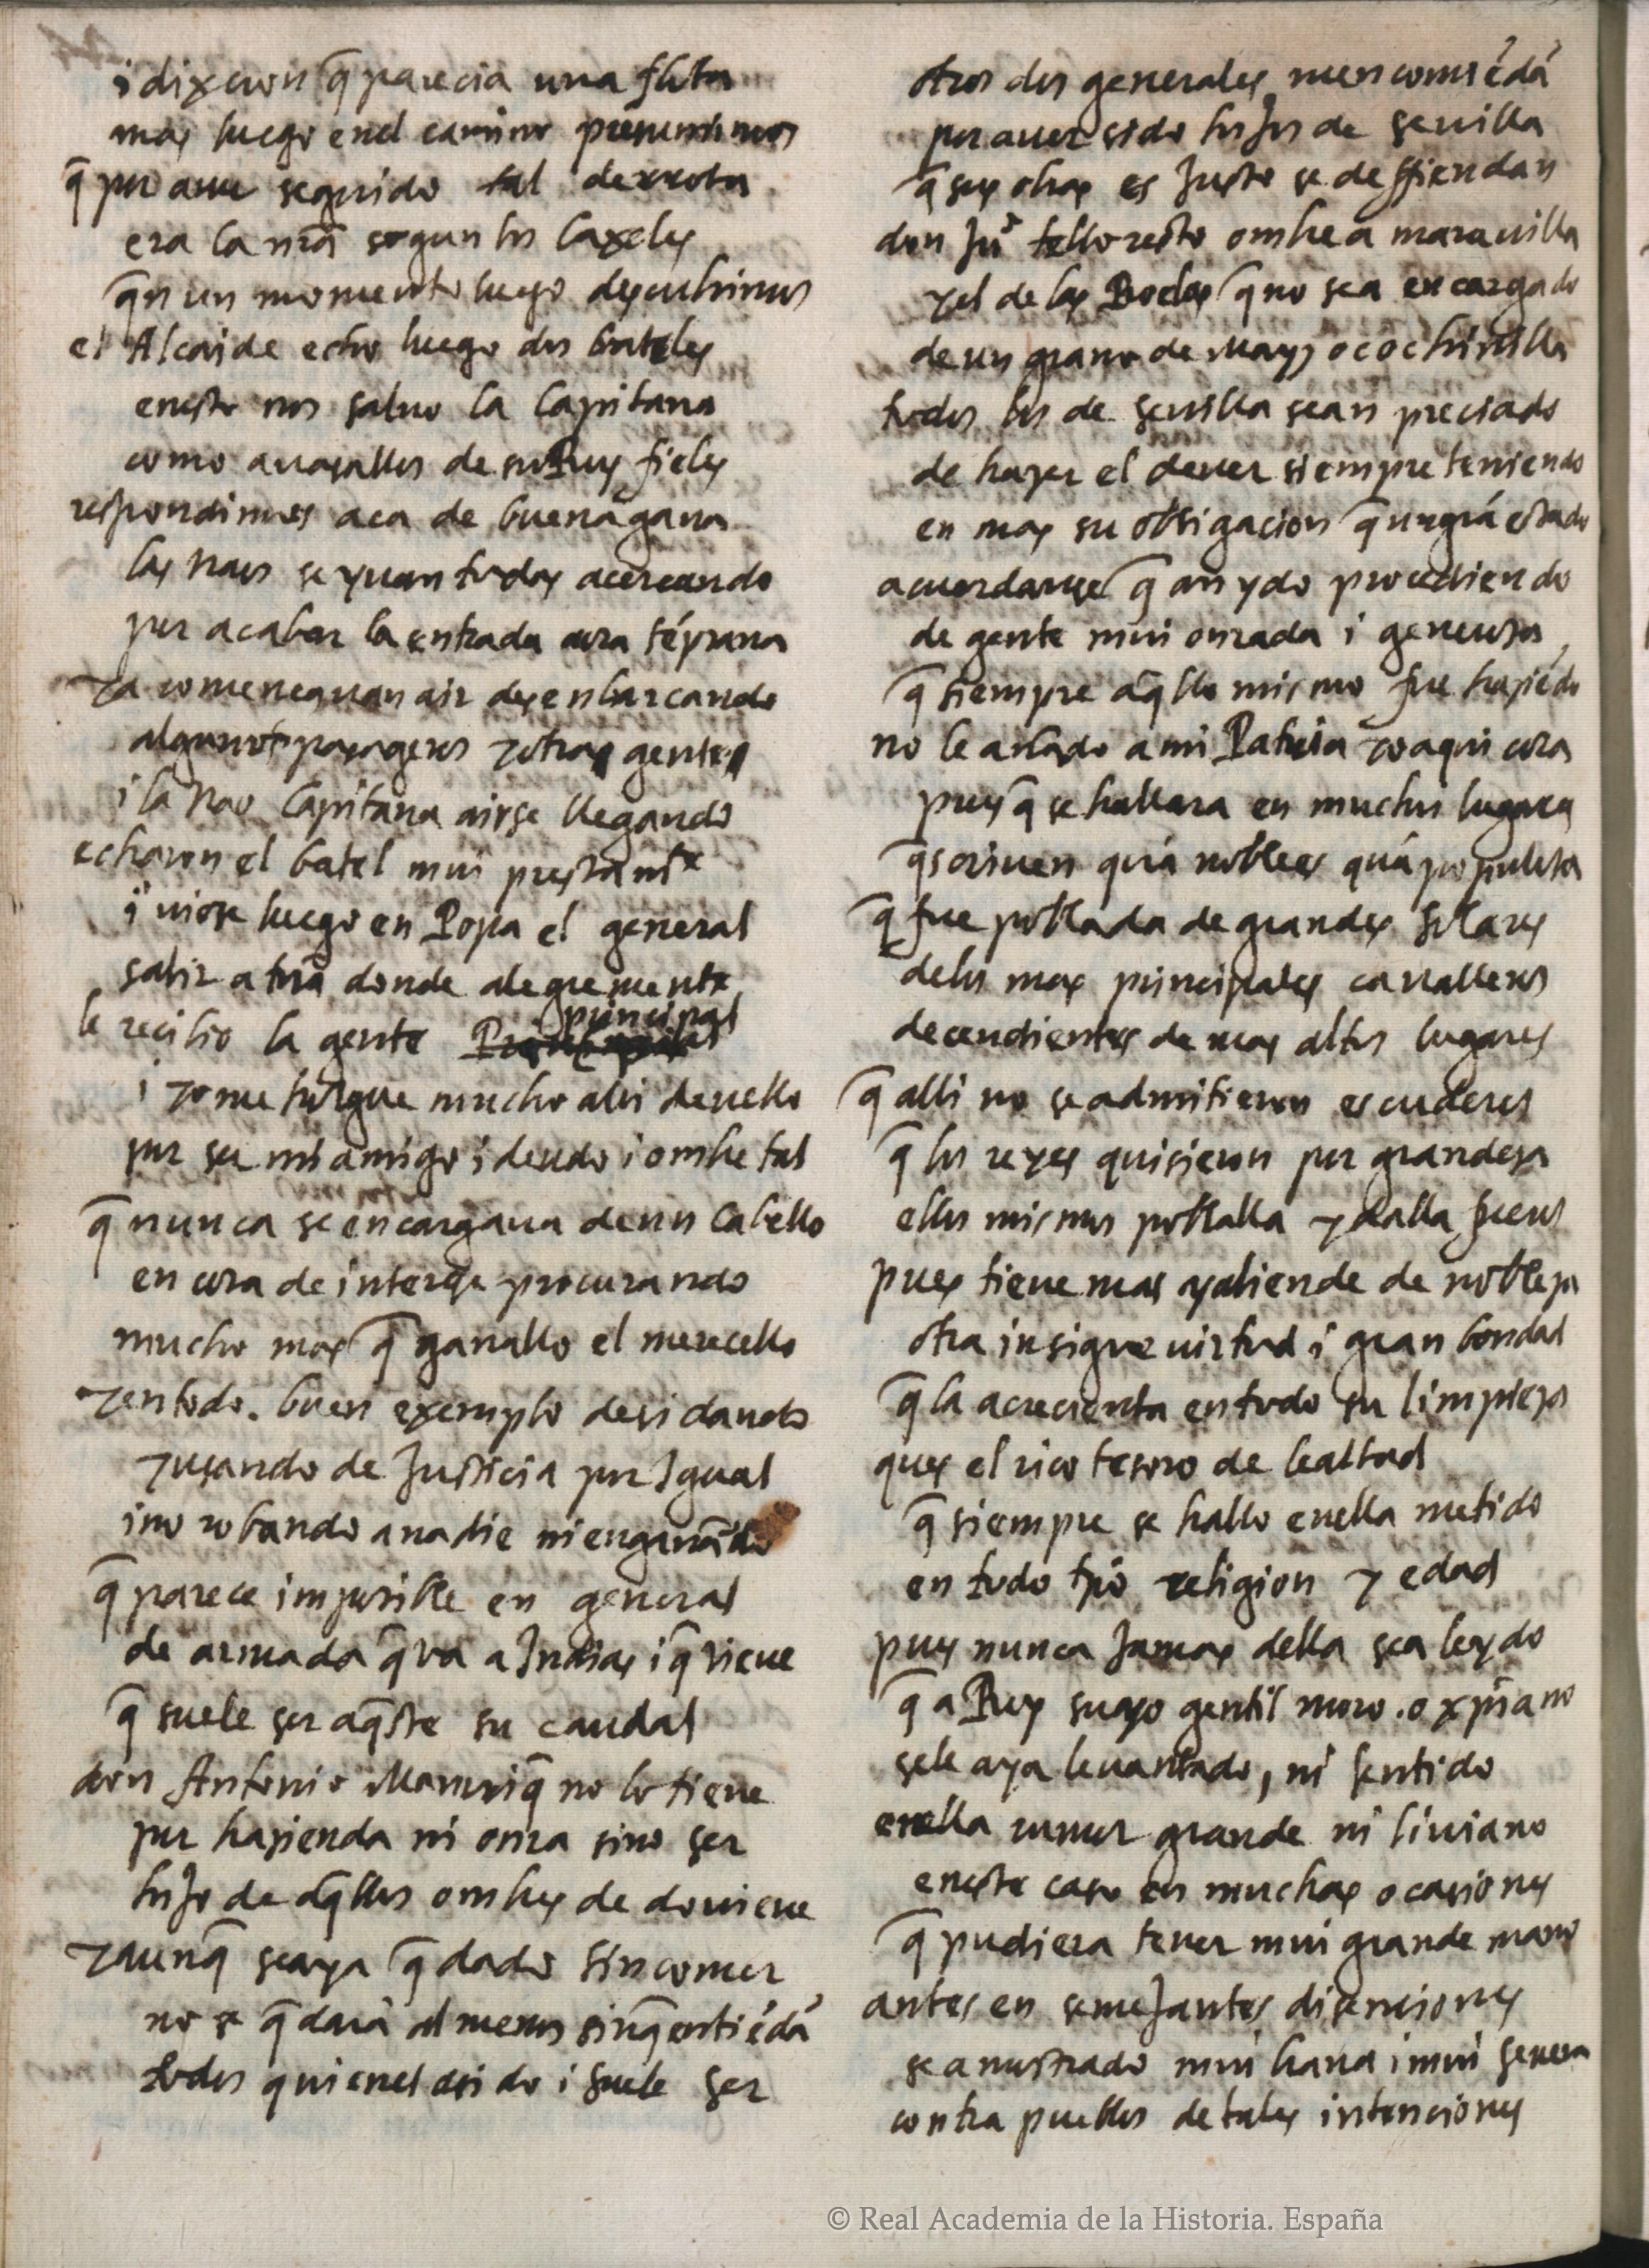 i dixeron q̄ parecia una flota
mas luego enel camino presumimos
q̄ por aver seguido tal derrota
era la nr̄a segun los baxeles
q̄n un momento luego descubrimos
el Alcaide echo luego dos bateles
enesto nos salvo la Capitana
como a vasallos de su Rey fieles
respondimos aca de buena gana
las naos se yvan todas acercando
por acabar la entrada cora tēprana
ya començavan air desenbarcando
algunos pasageros y otras gentes
i la nao Capitana airse llegando
echaron el batel mui prestamte
i viose luego en Popa el general
salir a trr̄a donde alegremente
principal
le recibio la gente
i yo me holgue mucho alli de vello
por ser mi amigo i deudo i ombre tal
q̄ nunca se encargava de un cabello
en cosa de interese procurando
mucho mas q̄ ganallo el merecello
y en todo. buen exemplo de si dando
y usando de Justicia por Igual
i no robando a nadie ni engañādo
q̄ parece imposible en general
de armada q̄ va a Indias i q̄ viene
q̄ suele ser aq̄ste su caudal
don Antonio Manriq̄ no lo tiene
por hazienda ni onra sino ser
hijo de aq̄llos ombres de do viene
y aunq̄ seaya q̄dado sin comer
no se q̄dara al menos sinq̄ entiēdā
todos quien el asido i suele ser
otros dos generales mencomiēdā
por aver sido hijos de sevilla
q̄ sus obras es Justo se deffiendan
don Juº tello resto ombre a maravilla
y el de las Roelas q̄ no sea encargado
de un grano de mayz o cochinilla
todos los de sevilla sean preciado
de hazer el dever siempre teniendo
en mas su obligacion q̄ un grā estado
acuerdanse q̄ an ydo procediendo
de gente mui onrada i generosa
q̄ siempre aq̄llo mismo fue haziēdo
no le añado a mi Patria yo aqui cosa
pues q̄ se hallara en muchos lugares
q̄scriven quā nobles quā populosa
q̄ fue poblada de grandes solares
delos mas principales cavalleros
decendientes de mas altos lugares
q̄ alli no se admitieron escuderos
q̄ los reyes quisieron por grandeza
ellos mismos poblalla y dalla fueros
pues tiene mas ayaliende de nobleza
otra insigne virtud i gran bondad
q̄ la acrecienta en todo su limpieza
ques el rico tesoro de lealtad
q̄ siempre se hallo enella metido
en todo tpō religion y edad
pues nunca Jamas della sea leydo
q̄ a Rey suyo gentil moro .o xpīano
sele aya levantado, ni sentido
enella rumor grande ni liviano
eneste caso en muchas ocasiones
q̄ pudiera tener mui grande mano
antes en semeJantes disensiones
se a mostrado mui brava i mui severa
contra pueblos de tales intenciones
© Real Academia de la Historia. España